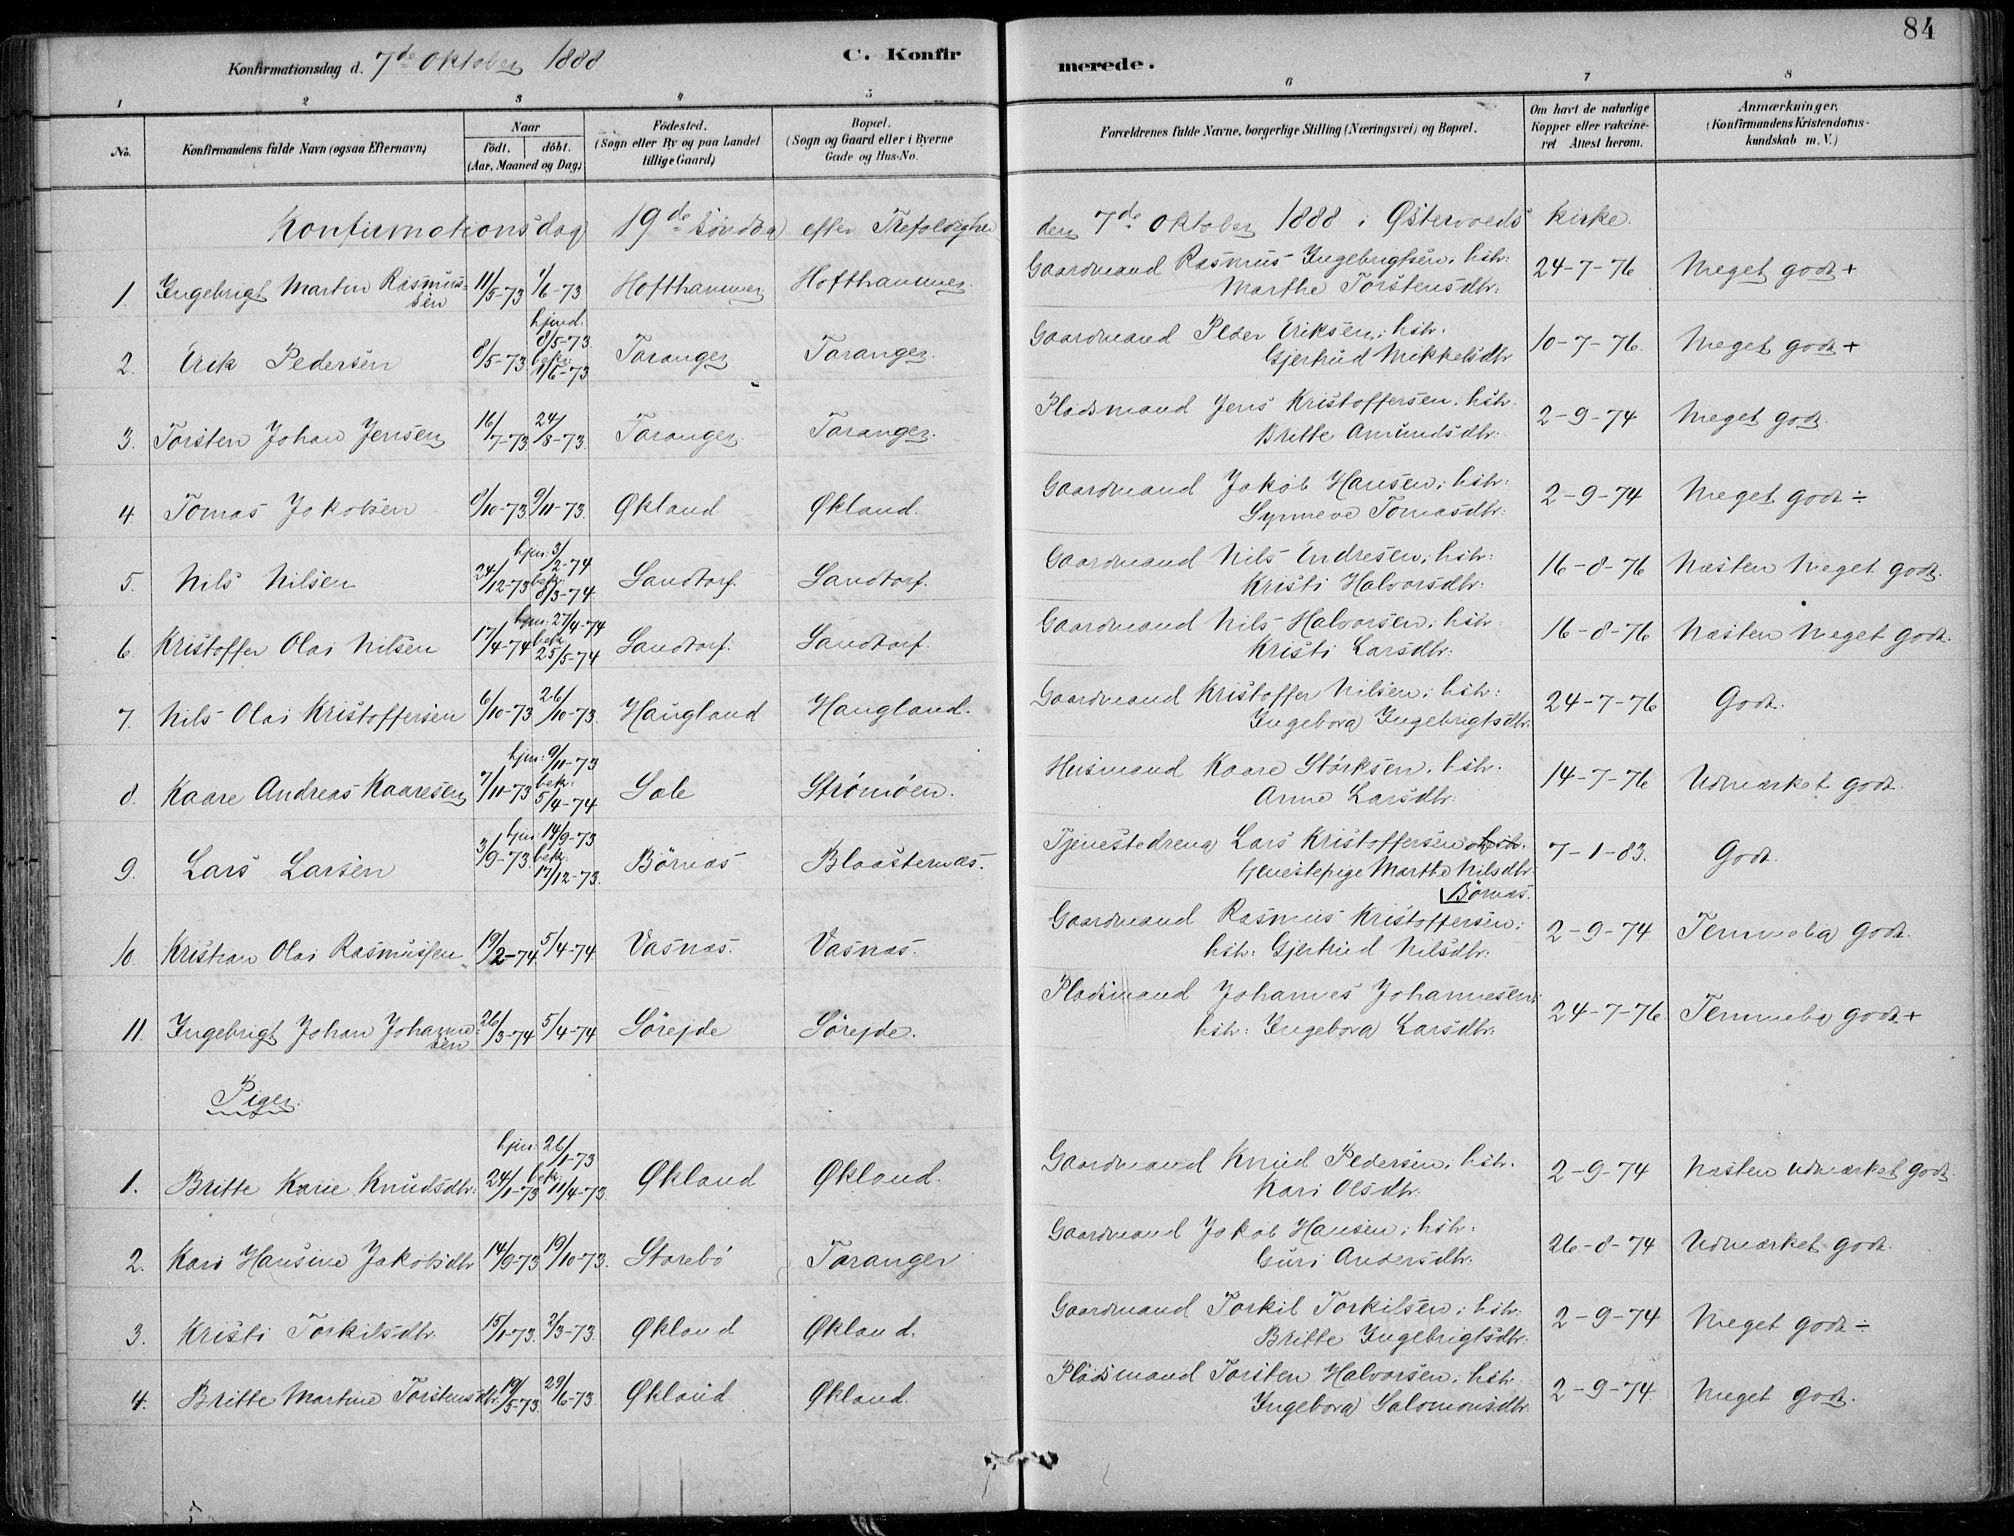 84
Konfirmationsdag d. 7de Oktober 1888
C. Konfirmerede.
1 2 3 4 5 6 7 8
No.
Konfirmandens fulde Navn (ogsaa Efternavn)
Naar
födt. döbt.
(Aar, Maaned og Dag)
Födested.
(Sogn eller By og paa Landet
tillige Gaard)
Bopæl.
(Sogn og Gaard eller i Byerne
Gade og Hus-No.
Forældrenes fulde Navne, borgerlige Stilling (Næringsvei) og Bopæl.
Om havt de naturlige
Kopper eller vakcine-
ret Attest herom.
Anmærkninger.
(Konfirmandens Kristendoms-
kundskab m. V.)
Konfirmationsdag 19de Søndag efter Trefoldighed den 7de Oktober 1888 i Østervoeds kirke.
1. Ingebrigt Martin Rasmussen 11/5-73 1/6-73 Hofthammer Hofthammer. Gaardmand Rasmus Ingebrigtsen, hstr: Marthe Torstensdtr: 24-7-76 Meget godt +
2. Erik Pedersen 8/5-73 hjmd. 8/5-73 bekr: 1/6-73 Taranger Taranger. Gaardmand Peder Eriksen; hstr. Gjertrud Mikkelsdtr 10-7-76. Meget godt +
3. Torsten Johan Jensen 16/7-73 24/8-73. Taranger. Taranger. Pladsmand Jens Kristoffersen, hstr. Britte Amundsdtr. 2-9-74 Meget godt.
4. Tomas Jakobsen 9/10-73 9/11-73. Økland Økland. Gaardmand Jakob Hansen; hstr: Synneve Tomasdtr: 2-9-74 Meget godt ÷
5. Nils Nilsen 24/12-73 hjm: 3/2-74 bekr: 8/3-74. Sandtorf. Sandtorf. Gaardmand Nils Endresen; hstr: Kristi Halvorsdtr: 16-8-76 Næsten Meget godt.
6. Kristoffer Olai Nilsen 17/4-74 hjm: 27/4-74 bekr. 25/5-74 Sandtorf. Sandtorf. Gaardmand Nils Halvorsen, hstr: Kristi Larsdtr: 16-8-76 Næsten Meget godt.
7. Nils Olai Kristoffersen 6/10-73 26/10-73. Haugland Haugland. Gaardmand Kristoffer Nilsen; hstr: Ingeborg Ingebrigtsdtr. 24-7-76 Godt.
8. Kaare Andreas Kaaresen 7/11-73 hjm: 9/11-73 bekr: 5/4-74 Sale Strømøen. Husmand Kaare Størksen, hstr. Anne Larsdtr. 14-7-76 Udmærket godt.
9. Lars Larsen 3/9-73. hjm: 14/9-73 bekr: 17/12-73. Børnæs Blaasternæs. Tjenestedreng Lars Kristoffersen Marthe Nilsdtr. Børnæs. 7-1-83. Godt.
10. Kristian Olai Rasmussen 19/2-74 5/4-74 Vasnæs. Vasnæs. Gaardmand Rasmus Kristoffersen; hstr: Gjertrud Nilsdtr: 2-9-74 Temmelig godt.
11. Ingebrigt Johan Johannesen 26/3-74 5/4-74 Sörejde Sörejde. Pladsmand Johannes Johannesen; hstr: Ingeborg Larsdtr: 24-7-76 Temmelig godt +
Piger.
1. Britte Karie Knudsdtr: 24/1-73 hjm: 26/1-73 bekr. 11/4-73. Økland Økland. Gaardmand Knud Pedersen, hstr. Kari Olsdtr. 2-9-74 Næsten udmærket godt.
2. Kari Hansine Jakobsdtr 14/9-73 19/10-73. Storebø Taranger Gaardmand Jakob Hansen; hstr. Guri Andersdtr. 26-8-74 Udmærket godt.
3. Kristi Torkilsdtr. 15/1-73. 2/3-73. Økland Økland. Gaardmand Torkil Torkilsen; hstr: Britte Ingebrigtsdtr: 2-9-74 Meget godt ÷
4. Britte Martine Torstensdtr. 19/5-73. 29/6-73. Økland Økland. Pladsmand Torsten Halvorsen; hstr: Ingeborg Salomonsdtr. 2-9-74 Meget godt.